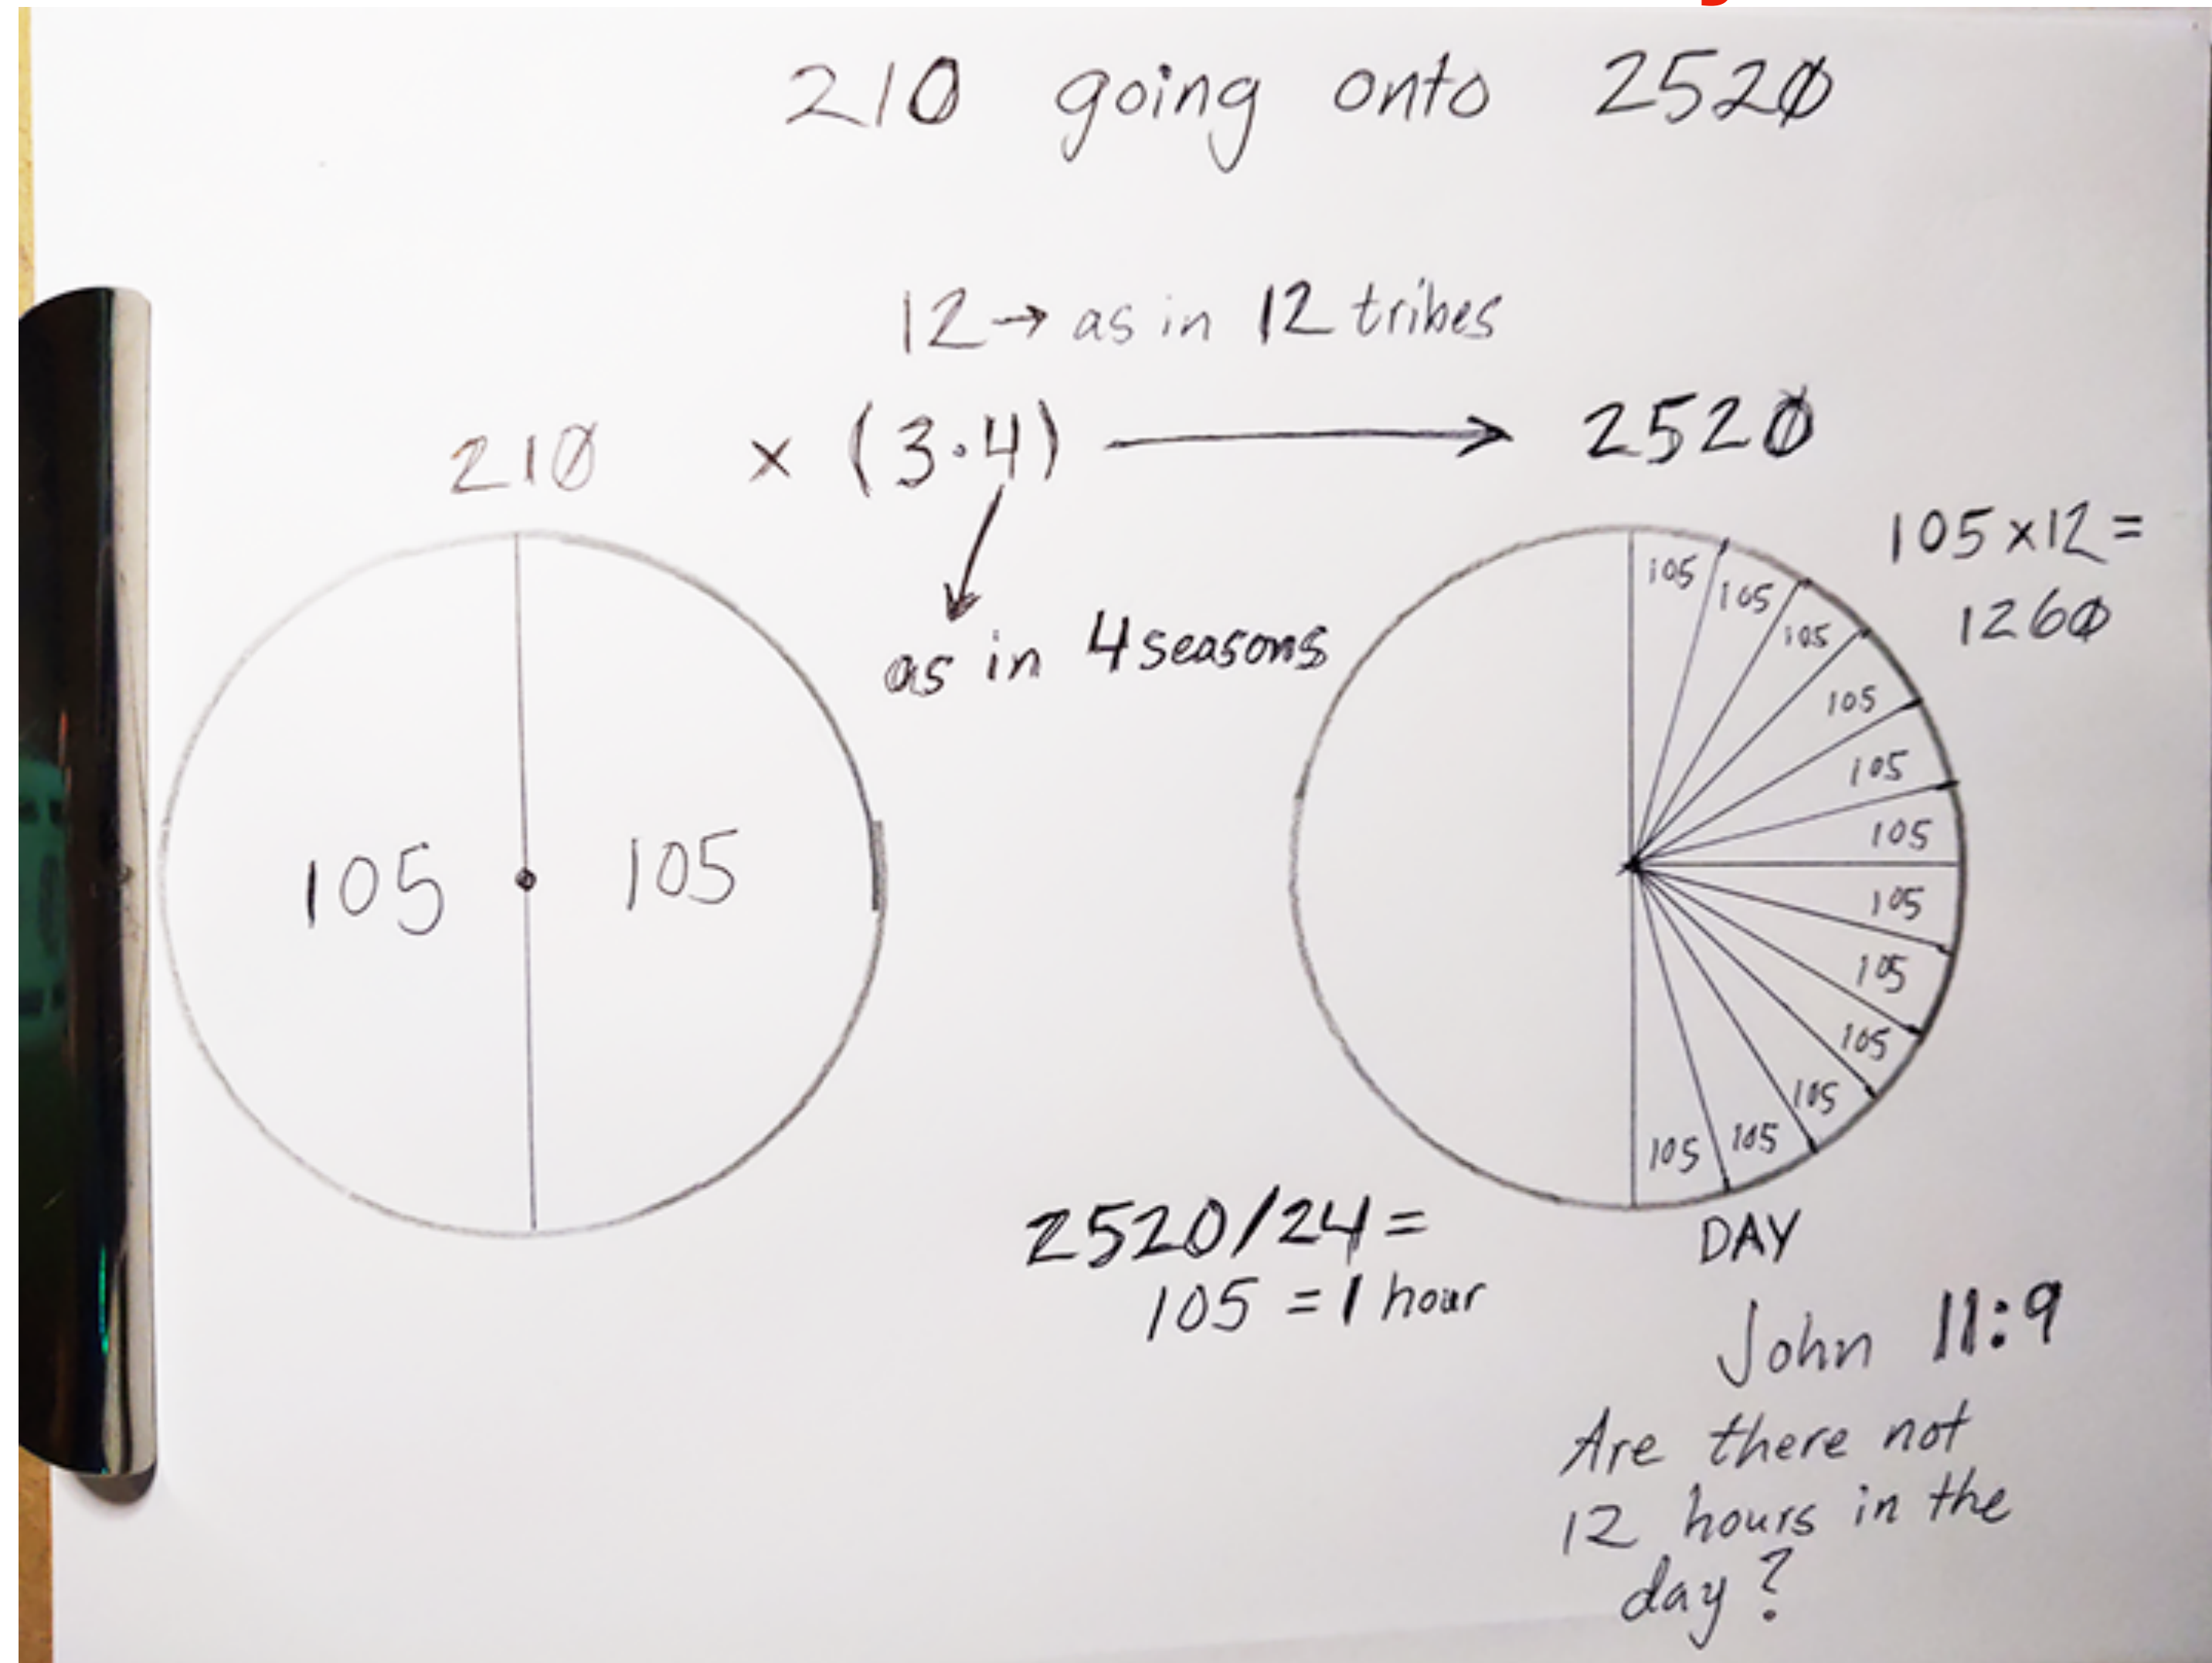 210 going onto 2520
12→ as in 12 tribes
210 x (3·4) → 2520
as in 4 seasons
105 x12 =
1260
105 105
105
105
105
105
105
105
105
105
105
105
105
105
2520/24 =
105 = 1 hour
DAY
John 11:9
Are there not
12 hours in the
day?